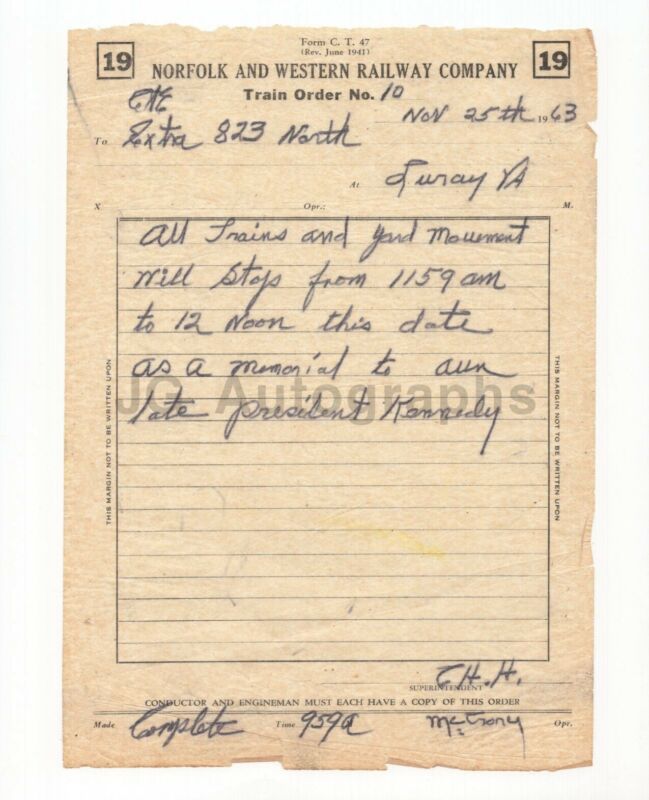 Form C. T. 47
(Rev. June 1941)
19 NORFOLK AND WESTERN RAILWAY COMPANY 19
Train Order No. 10
Nov 25th 1963
C&E
To Extra 823 North
At Luray VA
X Opr.: M.
All Trains and yard movement
Will Stop from 1159 am
to 12 Noon this date
as a memorial to our
late president Kennedy
JG Autographs
THIS MARGIN NOT TO BE WRITTEN UPON
THIS MARGIN NOT TO BE WRITTEN UPON
C.H.H.
SUPERINTENDENT
CONDUCTOR AND ENGINEMAN MUST EACH HAVE A COPY OF THIS ORDER
Made Complete Time 959a Opr.